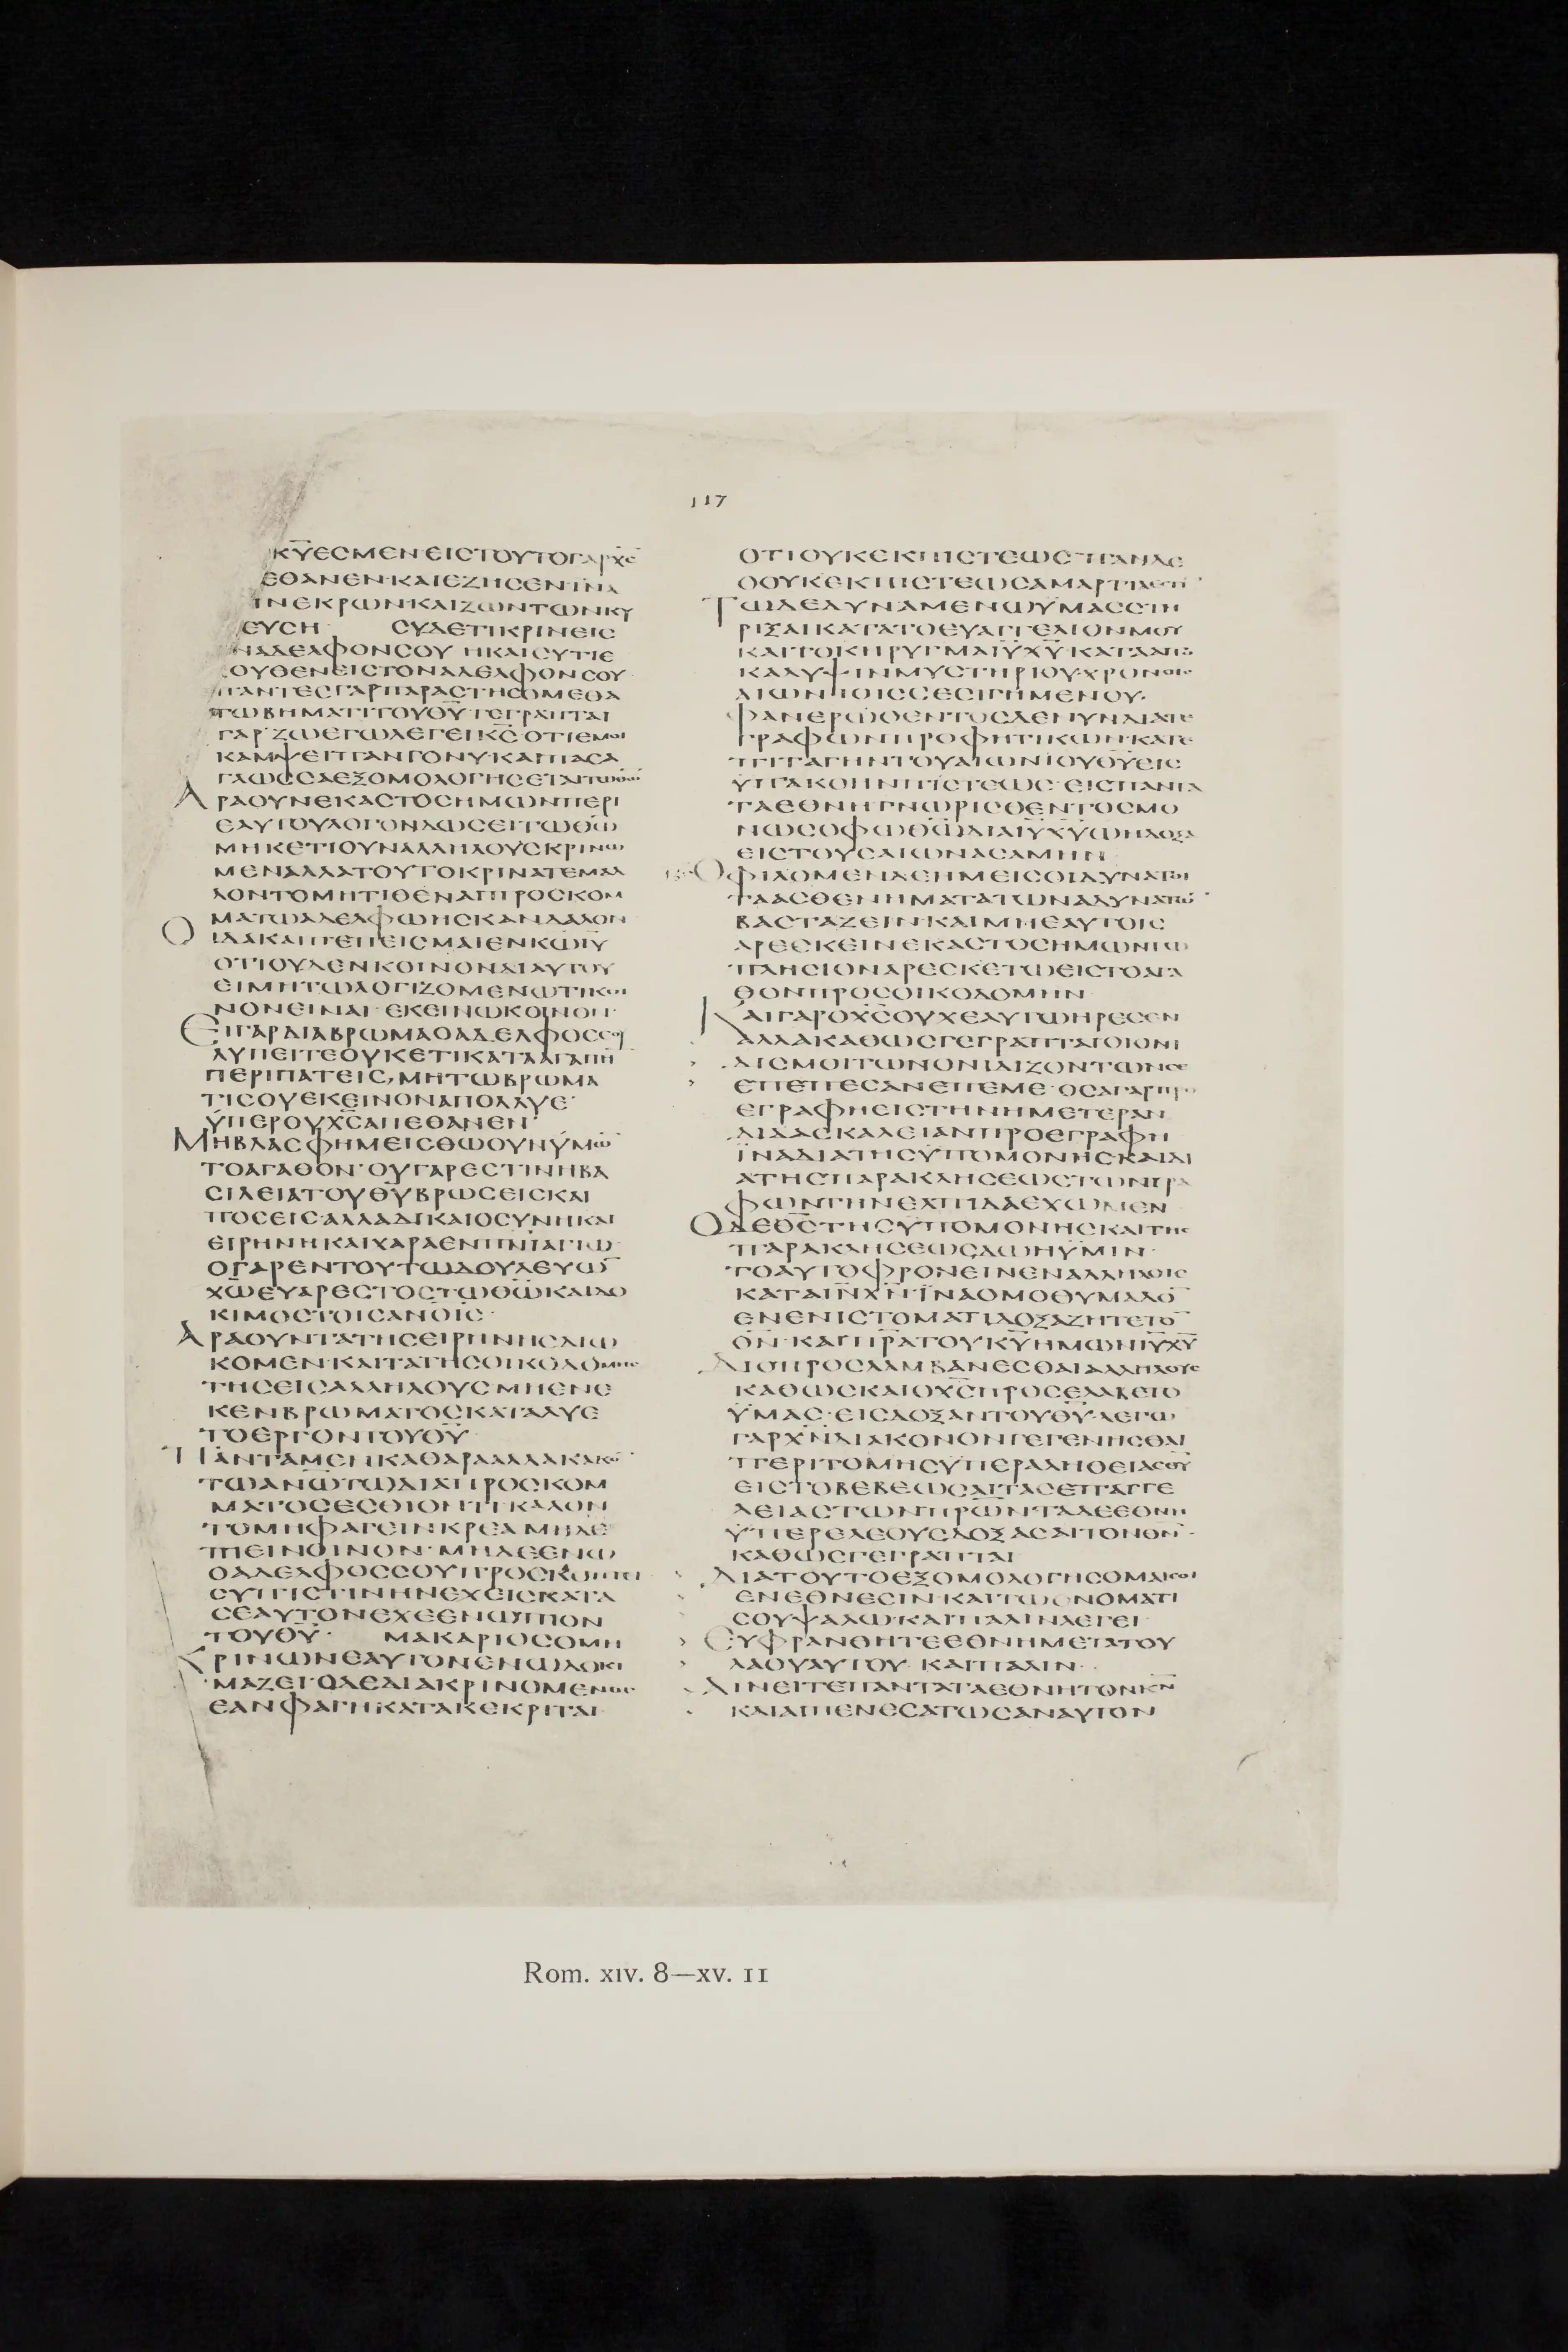 117
ΚΥ̅ΕCΜΕΝ·ΕΙCΤΟΥΤΟΓΑΡΧC̅
ΕΘΑΝΕΝ·ΚΑΙΕΖΗCΕΝ·ΪΝΑ
ΝΕΚΡΩΝ·ΚΑΙΖΩΝΤΩΝΚΥ
ΕΥCΗ CΥΔΕΤΙΚΡΙΝΕΙC
ΝΑΔΕΛΦΟΝCΟΥ ΗΚΑΙCΥΤΙΕ
ΟΥΘΕΝΕΙCΤΟΝΑΔΕΛΦΟΝCΟΥ
ΠΑΝΤΕCΓΑΡΠΑΡΑCΤΗCΟΜΕΘΑ
ΤΩΒΗΜΑΤΙΤΟΥΘΥ̅·ΓΕΓΡΑΠΤΑΙ
ΓΑΡ·ΖΩΕΓΩΛΕΓΕΙΚC̅·ΟΤΙΕΜΟΙ
ΚΑΜΨΕΙΠΑΝΓΟΝΥΚΑΙΠΑCΑ
ΓΛΩCCΑΕΞΟΜΟΛΟΓΗCΕΤΑΙΤΩΘΩ̅
ΑΡΑΟΥΝΕΚΑCΤΟCΗΜΩΝΠΕΡΙ
ΕΑΥΤΟΥΛΟΓΟΝΔΩCΕΙΤΩΘΩ̅
ΜΗΚΕΤΙΟΥΝΑΛΛΗΛΟΥCΚΡΙΝΩ
ΜΕΝΑΛΛΑΤΟΥΤΟΚΡΙΝΑΤΕΜΑΛ
ΛΟΝΤΟΜΗΤΙΘΕΝΑΙΠΡΟCΚΟΜ
ΜΑΤΩΑΔΕΛΦΩΗCΚΑΝΔΑΛΟΝ
ΟΙΔΑΚΑΙΠΕΠΕΙCΜΑΙΕΝΚΩ̅ΙΥ̅
ΟΤΙΟΥΔΕΝΚΟΙΝΟΝΔΙΑΥΤΟΥ
ΕΙΜΗΤΩΛΟΓΙΖΟΜΕΝΩΤΙΚΟΙ
ΝΟΝΕΙΝΑΙ·ΕΚΕΙΝΩΚΟΙΝΟΝ·
ΕΙΓΑΡΔΙΑΒΡΩΜΑΟΑΔΕΛΦΟCCΟΥ
ΛΥΠΕΙΤΕΟΥΚΕΤΙΚΑΤΑΑΓΑΠΗ
ΠΕΡΙΠΑΤΕΙC,ΜΗΤΩΒΡΩΜΑ
ΤΙCΟΥΕΚΕΙΝΟΝΑΠΟΛΛΥΕ·
ΫΠΕΡΟΥΧC̅ΑΠΕΘΑΝΕΝ·
ΜΗΒΛΑCΦΗΜΕΙCΘΩΟΥΝΫΜΩ̅
ΤΟΑΓΑΘΟΝ·ΟΥΓΑΡΕCΤΙΝΗΒΑ
CΙΛΕΙΑΤΟΥΘΥ̅ΒΡΩCΕΙCΚΑΙ
ΠΟCΕΙC·ΑΛΛΑΔΙΚΑΙΟCΥΝΗΚΑΙ
ΕΙΡΗΝΗΚΑΙΧΑΡΑΕΝΠΝ̅ΙΑΓΙΩ
ΟΓΑΡΕΝΤΟΥΤΩΔΟΥΛΕΥΩ̅
ΧΩ̅ΕΥΑΡΕCΤΟCΤΩΘΩ̅ΚΑΙΔΟ
ΚΙΜΟCΤΟΙCΑΝΟΙC̅·
ΑΡΑΟΥΝΤΑΤΗCΕΙΡΗΝΗCΔΙΩ
ΚΟΜΕΝ·ΚΑΙΤΑΤΗCΟΙΚΟΔΟΜΗC
ΤΗCΕΙCΑΛΛΗΛΟΥC·ΜΗΕΝΕ
ΚΕΝΒΡΩΜΑΤΟCΚΑΤΑΛΥΕ
ΤΟΕΡΓΟΝΤΟΥΘΥ̅·
ΠΑΝΤΑΜΕΝΚΑΘΑΡΑΑΛΛΑΚΑΚΟ̅
ΤΩΑΝΩ̅ΤΩΔΙΑΠΡΟCΚΟΜ
ΜΑΤΟCΕCΘΙΟΝΤΙ·ΚΑΛΟΝ
ΤΟΜΗΦΑΓΕΙΝ·ΚΡΕΑ·ΜΗΔΕ
ΠΕΙΝΟΙΝΟΝ·ΜΗΔΕΕΝΩ
ΟΑΔΕΛΦΟCCΟΥΠΡΟCΚΟΠΤΕΙ
CΥΠΙCΤΙΝΗΝΕΧΕΙCΚΑΤΑ
CΕΑΥΤΟΝΕΧΕΕΝΩΠΙΟΝ
ΤΟΥΘΥ̅· ΜΑΚΑΡΙΟCΟΜΗ
ΚΡΙΝΩΝΕΑΥΤΟΝΕΝΩΔΟΚΙ
ΜΑΖΕΙ·ΟΔΕΔΙΑΚΡΙΝΟΜΕΝΟC
ΕΑΝΦΑΓΗΚΑΤΑΚΕΚΡΙΤΑΙ·
ΟΤΙΟΥΚΕΚΠΙCΤΕΩC·ΠΑΝΔΕ
ΟΟΥΚΕΚΠΙCΤΕΩCΑΜΑΡΤΙΑΕCΤΙ
ΤΩΔΕΔΥΝΑΜΕΝΩΫΜΑCCΤΗ
ΡΙΞΑΙΚΑΤΑΤΟΕΥΑΓΓΕΛΙΟΝΜΟΥ
ΚΑΙΤΟΚΗΡΥΓΜΑΙΥ̅ΧΥ̅·ΚΑΤΑΑΠΟ
ΚΑΛΥΨΙΝΜΥCΤΗΡΙΟΥ·ΧΡΟΝΟΙC
ΑΙΩΝΙΟΙCCΕCΙΓΗΜΕΝΟΥ·
ΦΑΝΕΡΩΘΕΝΤΟCΔΕΝΥΝΔΙΑΤΕ
ΓΡΑΦΩΝΠΡΟΦΗΤΙΚΩΝ·ΚΑΤΕ
ΠΙΤΑΓΗΝΤΟΥΑΙΩΝΙΟΥΘΥ̅ΕΙC
ΫΠΑΚΟΗΝΠΙCΤΕΩC·ΕΙCΠΑΝΤΑ
ΤΑΕΘΝΗΓΝΩΡΙCΘΕΝΤΟCΜΟ
ΝΩCΟΦΩΘΩ̅ΔΙΑΙΥ̅ΧΥ̅ΩΗΔΟΞΑ
ΕΙCΤΟΥCΑΙΩΝΑCΑΜΗΝ
ΟΦΙΛΟΜΕΝΔΕΗΜΕΙCΟΙΔΥΝΑΤΟΙ
ΤΑΑCΘΕΝΗΜΑΤΑΤΩΝΑΔΥΝΑΤΩ̅
ΒΑCΤΑΖΕΙΝ·ΚΑΙΜΗΕΑΥΤΟΙC
ΑΡΕCΚΕΙΝ·ΕΚΑCΤΟCΗΜΩΝΤΩ
ΠΛΗCΙΟΝΑΡΕCΚΕΤΩΕΙCΤΟΑΓΑ
ΘΟΝΠΡΟCΟΙΚΟΔΟΜΗΝ
ΚΑΙΓΑΡΟΧC̅ΟΥΧΕΑΥΤΩΗΡΕCΕΝ
ΑΛΛΑΚΑΘΩCΓΕΓΡΑΠΤΑΙΟΙΟΝΙ
ΔΙCΜΟΙΤΩΝΟΝΙΔΙΖΟΝΤΩΝCΕ
ΕΠΕΠΕCΑΝΕΠΕΜΕ·ΟCΑΓΑΡΠΡΟ
ΕΓΡΑΦΗΕΙCΤΗΝΗΜΕΤΕΡΑΝ
ΔΙΔΑCΚΑΛΕΙΑΝΠΡΟΕΓΡΑΦΗ
ΪΝΑΔΙΑΤΗCΫΠΟΜΟΝΗCΚΑΙΔΙ
ΑΤΗCΠΑΡΑΚΛΗCΕΩCΤΩΝΓΡΑ
ΦΩΝΤΗΝΕΛΠΙΔΑΕΧΩΜΕΝ
ΟΔΕΘC̅ΤΗCΫΠΟΜΟΝΗCΚΑΙΤΗC
ΠΑΡΑΚΛΗCΕΩCΔΩΗΫΜΙΝ·
ΤΟΑΥΤΟΦΡΟΝΕΙΝΕΝΑΛΛΗΛΟΙC
ΚΑΤΑΙΝ̅ΧΝ̅·ΪΝΑΟΜΟΘΥΜΑΔΟ̅
ΕΝΕΝΙCΤΟΜΑΤΙΔΟΞΑΖΗΤΕΤΟ̅
ΘΝ̅·ΚΑΙΠΡΑΤΟΥΚΥ̅ΗΜΩΝΙΥ̅ΧΥ̅
ΔΙΟΠΡΟCΛΑΜΒΑΝΕCΘΑΙΑΛΛΗΛΟΥC
ΚΑΘΩCΚΑΙΟΧC̅ΠΡΟCΕΛΑΒΕΤΟ
ΫΜΑC·ΕΙCΔΟΞΑΝΤΟΥΘΥ̅·ΛΕΓΩ
ΓΑΡΧΝ̅ΔΙΑΚΟΝΟΝΓΕΓΕΝΗCΘΑΙ
ΠΕΡΙΤΟΜΗCΫΠΕΡΑΛΗΘΕΙΑCΘΥ
ΕΙCΤΟΒΕΒΕΩCΑΙΤΑCΕΠΑΓΓΕ
ΛΕΙΑCΤΩΝΠΡΩ̅Ν·ΤΑΔΕΕΘΝΗ
ΫΠΕΡΕΛΕΟΥCΔΟΞΑCΑΙΤΟΝΘΝ̅·
ΚΑΘΩCΓΕΓΡΑΠΤΑΙ
ΔΙΑΤΟΥΤΟΕΞΟΜΟΛΟΓΗCΟΜΑΙCΟΙ
ΕΝΕΘΝΕCΙΝ·ΚΑΙΤΩΟΝΟΜΑΤΙ
CΟΥΨΑΛΩ·ΚΑΙΠΑΛΙΝΛΕΓΕΙ
ΕΥΦΡΑΝΘΗΤΕΕΘΝΗΜΕΤΑΤΟΥ
ΛΑΟΥΑΥΤΟΥ·ΚΑΙΠΑΛΙΝ·
ΑΙΝΕΙΤΕΠΑΝΤΑΤΑΕΘΝΗΤΟΝΚΝ̅
ΚΑΙΑΠΕΝΕCΑΤΩCΑΝΑΥΤΟΝ
Rom. xiv. 8—xv. 11